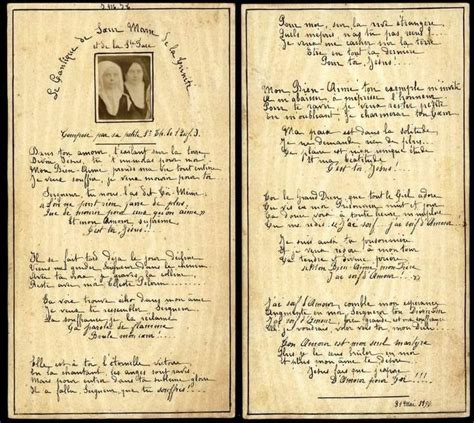 Le Cantique de Sœur Marie de la Trinité
et de la Ste Face
Composé par sa petite Sr Th. de l'Enf. J.
Dans ton amour t'exilant sur la terre
Divin Jésus, tu t'immolas pour moi
Mon Bien-Aimé, prends ma vie tout entière
Je veux souffrir, je veux mourir pour toi....
Seigneur, tu nous l'as dit Toi-Même,
« L'on ne peut rien faire de plus
« Que de mourir pour ceux qu'on aime »
Et mon Amour suprême
C'est toi, Jésus!!...
Il se fait tard déjà le jour décline
Viens me guider, Seigneur dans le chemin
Avec ta Croix, je gravis la colline
Reste avec moi Céleste Pèlerin....
Ta voix trouve écho dans mon âme
Je veux te ressembler Seigneur
La souffrance je la réclame
Ta parole de flamme
Brûle mon cœur....
Elle est à toi l'éternelle victoire
En la chantant, les anges sont ravis
Mais pour entrer dans ta sublime gloire
Il a fallu Seigneur, que tu souffris!!...
Pour moi, sur la rive étrangère
Quels mépris n'as tu pas reçus?...
Je veux me cacher sur la terre
Etre en tout la dernière
Pour toi, Jésus!
Mon Bien-Aimé ton exemple m'invite
A m'abaisser, à mépriser l'honneur
Pour te ravir, je veux rester petite
En m'oubliant je charmerai ton Cœur
Ma paix est dans la solitude
Je ne demande rien de plus...
Te plaire est mon unique étude
Et ma béatitude
C'est toi Jésus!...
Toi le Grand Dieu, que tout le Ciel adore
Tu vis en moi Prisonnier nuit et jour
Ta douce voix à toute heure m'implore
Tu me redis « J'ai soif.. J'ai soif d'Amour
Je suis aussi ta prisonnière
Et je veux redire à mon tour
Ta tendre et divine prière
« Mon Bien-Aimé, mon Frère
J'ai soif d'Amour!...»
J'ai soif d'Amour, comble mon espérance
Augmente en moi, Seigneur, ton Divin Feu
J'ai soif d'Amour bien grande est ma souffrance
Ah! je voudrais voler vers toi mon Dieu...
Ton Amour est mon seul martyre
Plus je le sens brûler en moi
Et plus mon âme te désire
Jésus fais que j'expire
D'Amour pour Toi!!!...
31 Mai 1896